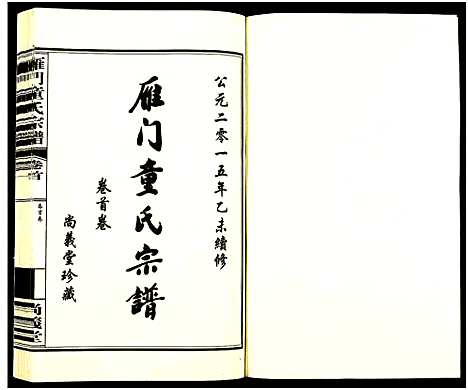 公元二零一五年乙未續修
雁门童氏宗譜
卷首卷
尚義堂珍藏
雁门童氏宗譜
卷首
卷首卷
尚義堂